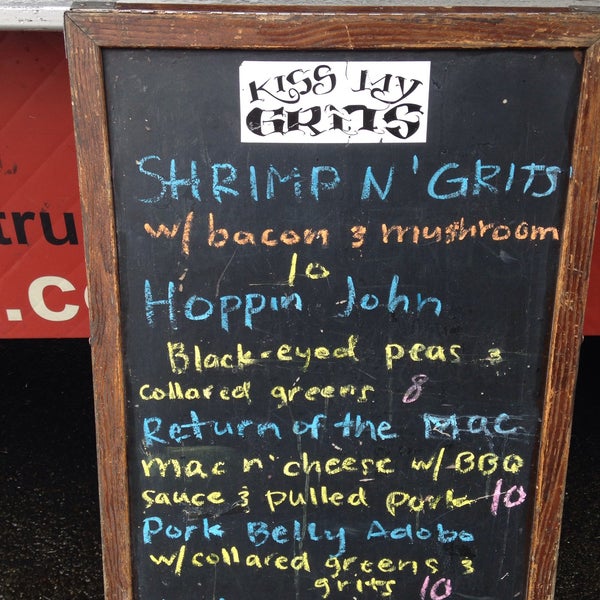 KISS MY
GRITS
SHRIMP N' GRITS
w/ bacon & mushroom
10
Hoppin John
Black-eyed peas &
collared greens 8
Return of the Mac
mac n' cheese w/ BBQ
sauce & pulled pork 10
Pork Belly Adobo
w/collared greens &
grits 10
tru
.c